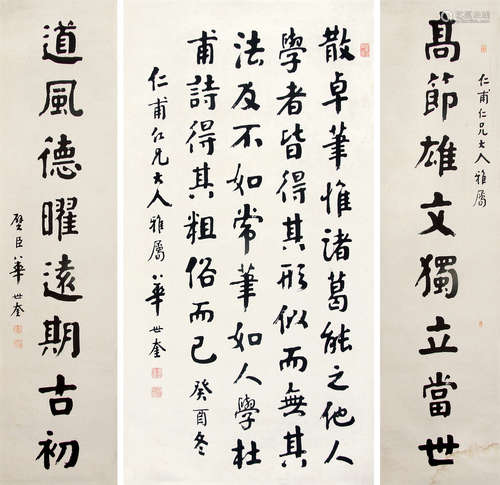 高節雄文獨立當世
仁甫仁兄大人雅屬
散卓筆惟諸葛能之他人
學者皆得其形似而無其
法反不如常筆如人學杜
甫詩得其粗俗而已 癸酉冬
仁甫仁兄大人雅屬 華世奎
道風德曜遠期古初
璧臣華世奎